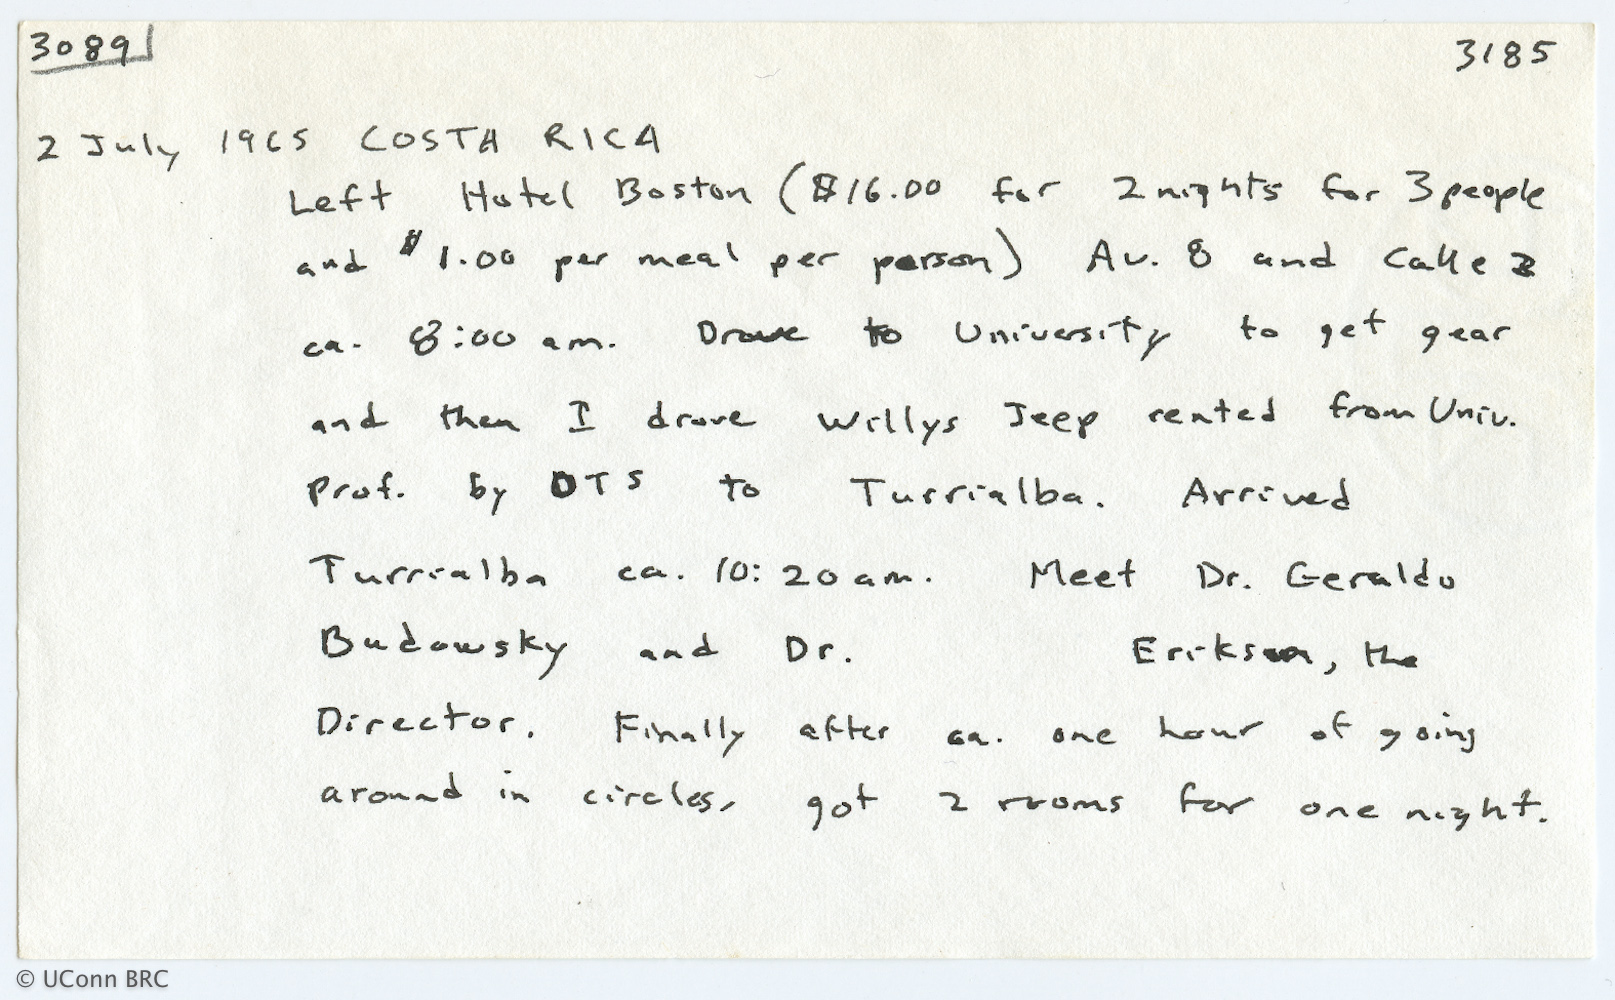 3089 3185
2 July 1965 COSTA RICA
Left Hotel Boston ($16.00 for 2 nights for 3 people
and $1.00 per meal per person) Av. 8 and Calle 2
ca. 8:00 am. Drove to University to get gear
and then I drove Willys Jeep rented from Univ.
Prof. by OTS to Turrialba. Arrived
Turrialba ca. 10:20 am. Meet Dr. Geraldo
Budowsky and Dr. Erikson, the
Director. Finally after ca. one hour of going
around in circles, got 2 rooms for one night.
© UConn BRC